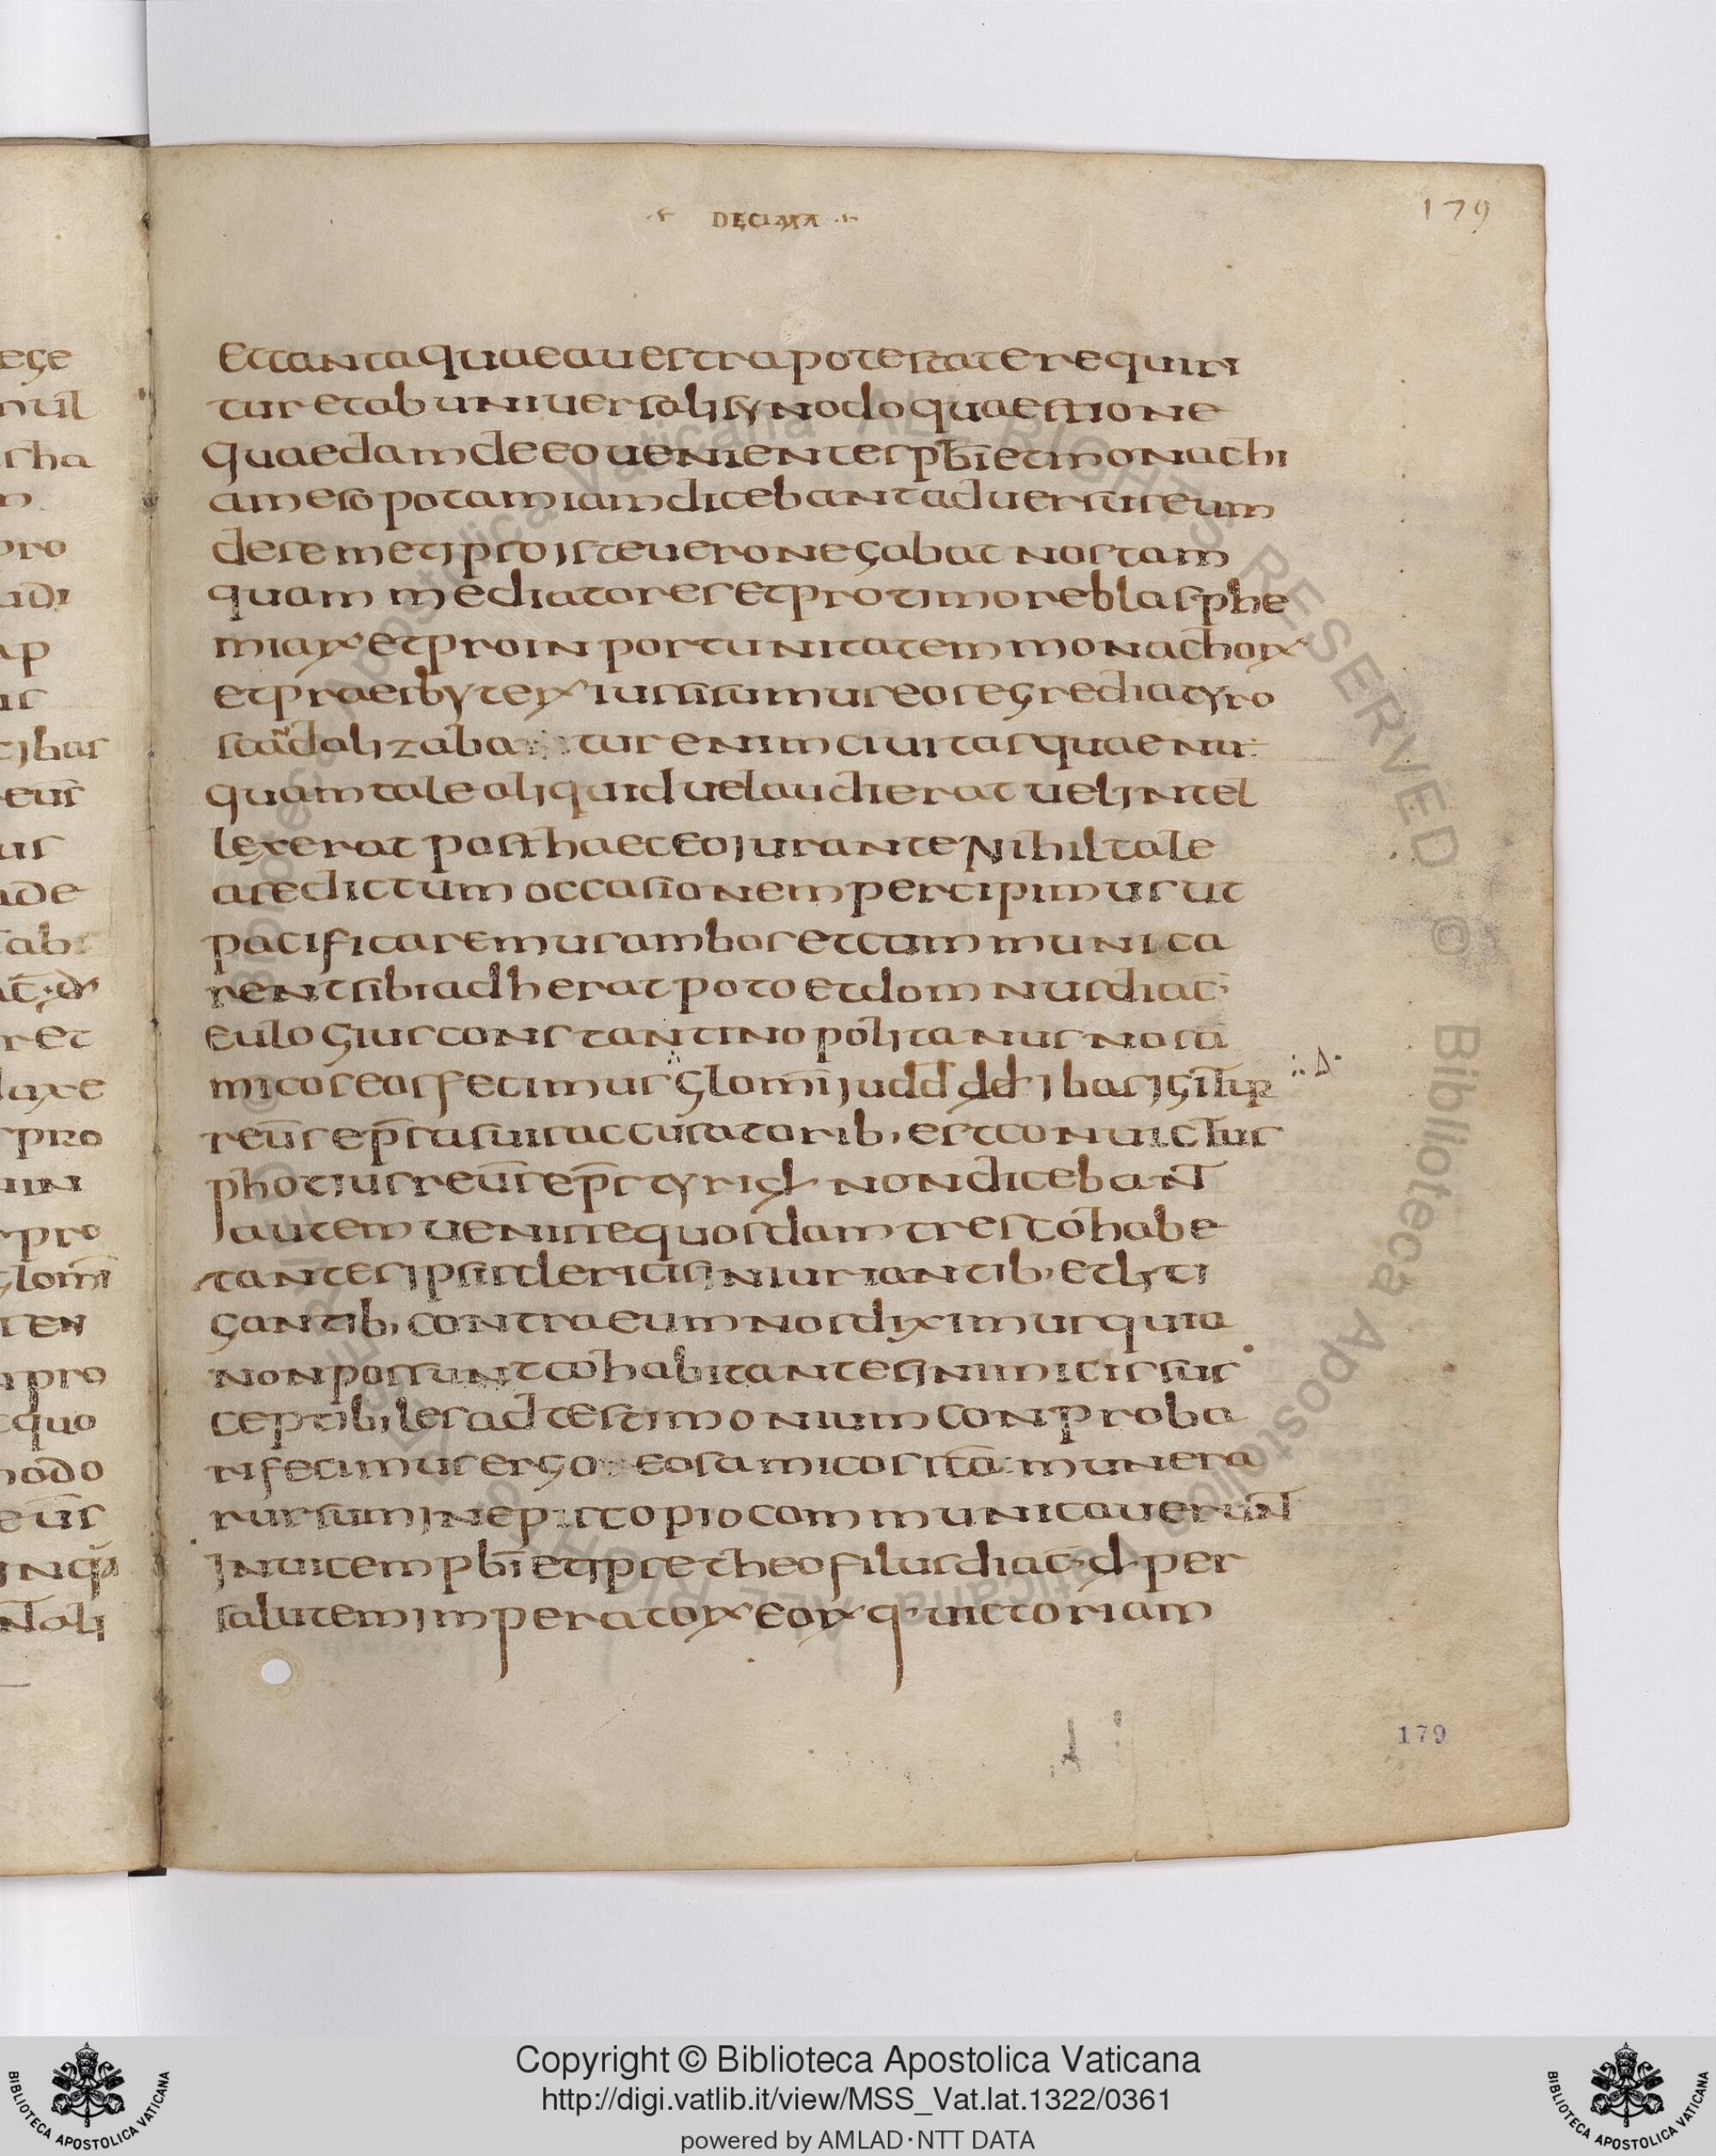 DECIMA
179
et tanta quae a uestra potestate requiri
tur et ab uniuersali synodo quaestione
quaedam de eo uenientes pb̄i et monachi
a mesopotamiam dicebant aduersus eum
de semetipso iste uero negabat nos tam
quam mediatores et pro timore blasphe
miaꝝ et pro inportunitatem monachoꝝ
et praesbyteꝝ iussi sumus eos egredi a tyro
scandalizaba tur enim ciuitas quae nu
quam tale aliquid uel audierat uel intel
lexerat post haec eo iurante nihil tale
a se dictum occasionem percipimus ut
pacificaremus ambos et communica
rent sibi adherat poto et domnus diac̄
eulogius constantinopolitanus nos a
micos eos fecimus glom̄ iudd dd ibas igitur
reūs ep̄s a suis accusatorib, est conuictus
photius reūs ep̄s tyri d non diceban̄t
autem uenirre quosdam tres cohabe
tantes ipsis clericis iniuriantib, et lyti
gantib, contra eum nos diximus quia
non possunt cohabitantes inimici sus
ceptibiles ad testimonium conproba
ri fecimus ergo eos amicos ita munera
rursum in episcopio communicauerun̄t
inuicem pb̄i et ipse theofilus diac d per
salutem imperatoꝝ eoꝝ q, uictoriam
179
ege
mul
sha
pro
ap
us
tibus
eūs
us
ade
ret
spro
uin
pro
glom̄
ten
pro
quo
modo
eūs
Copyright © Biblioteca Apostolica Vaticana
http://digi.vatlib.it/view/MSS_Vat.lat.1322/0361
powered by AMLAD·NTT DATA
BIBLIOTECA APOSTOLICA VATICANA
BIBLIOTECA APOSTOLICA VATICANA